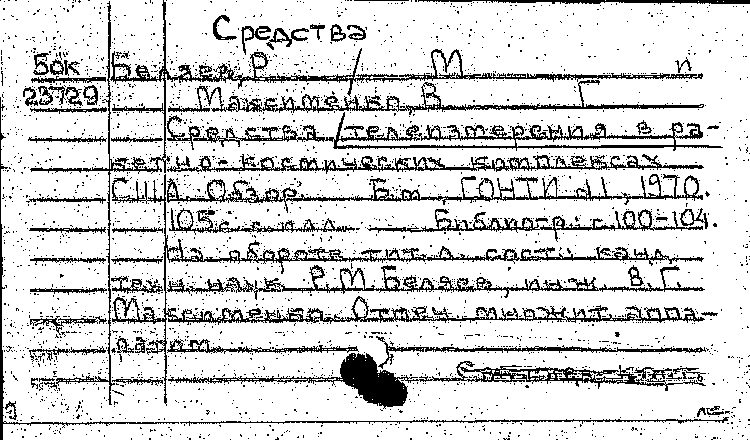 Средства
Бок Беляев, Р М п
23729 Максименко, В Г
Средства телеизмерения в ра-
кетно-космических комплексах
США. Обзор. Б.м., ГОНТИ №1, 1970.
105 с. с илл. Библиогр.: с. 100-104.
На обороте тит. л. сост.: канд.
техн. наук Р.М. Беляев, инж. В.Г.
Максименко. Отпеч. множит. аппа-
ратом